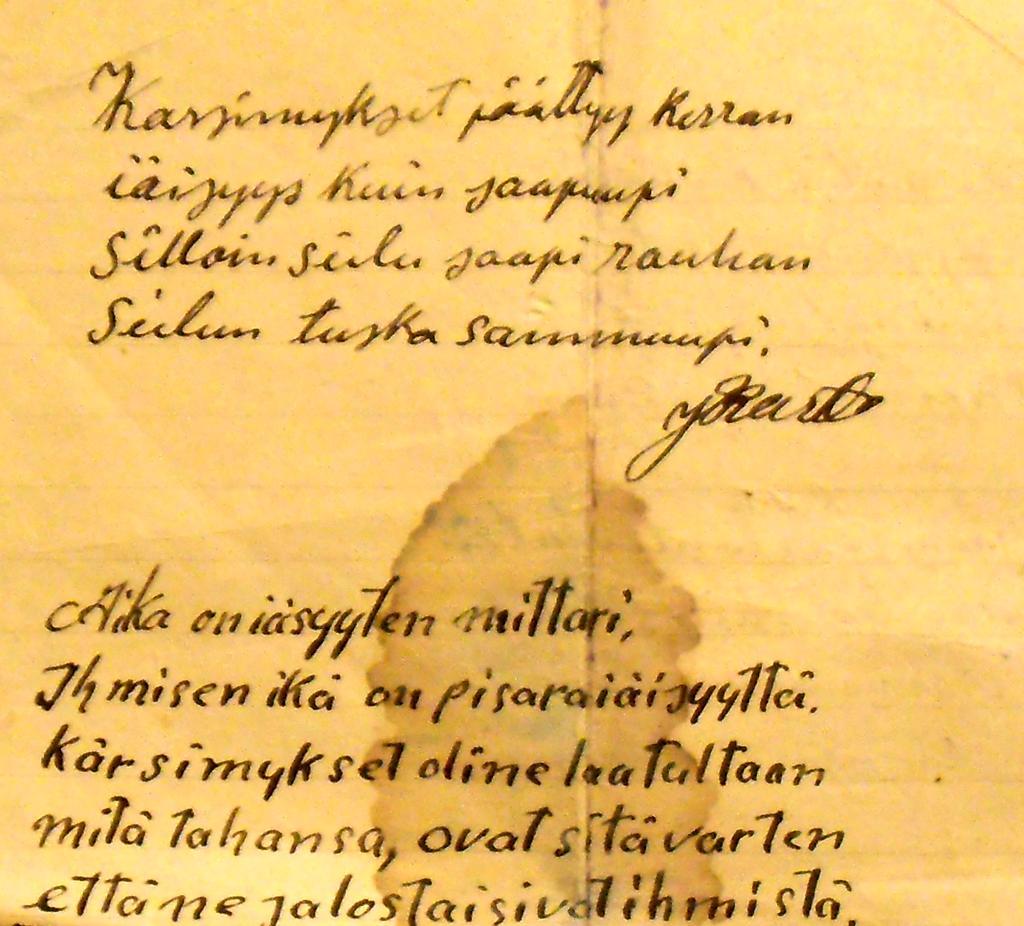 Kärsimykset päättyy kerran
iäisyys kuin saapuupi
Silloin sielu saapi rauhan
Sielun tuska sammuupi.
Aika on iäsyyten mittari,
Ihmisen ikä on pisara iäisyyttä.
Kärsimykset oline laatultaan
mitä tahansa, ovat sitä varten
että ne jalostaisivat ihmistä.